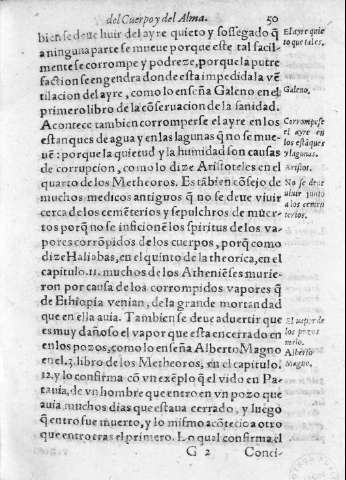 del Cuerpo y del Alma. 50
bien se deue huir del ayre quieto y sossegado q̃
a ninguna parte se mueue porque este tal facil-
mente se corrompe y podreze, porque la putre
faction se engendra donde esta impedida la vẽ
tilacion del ayre, como lo enseña Galeno en el
primero libro de la cõseruacion de la sanidad.
Acontece tambien corromperse el ayre en los
estanques de agua y en las lagunas q̃ no se mue-
uẽ: porque la quietud y la humidad son causas
de corrupcion, como lo dize Aristoteles en el
quarto de los Metheoros. Es tãbien cõsejo de
muchos medicos antiguos q̃ no se deue viuir
cerca de los cemẽterios y sepulchros de muer-
tos porq̃ no se inficionẽ los spiritus de los va-
pores corrõpidos de los cuerpos, porq̃ como
dize Haliabas, en el quinto de la theorica, en el
capitulo .11. muchos de los Atheniẽses murie-
ron por causa de los corrompidos vapores q̃
de Ethiopia venian, de la grande mortandad
que en ella auia. Tambien se deue aduertir que
es muy dañoso el vapor que esta encerrado en
en los pozos, como lo enseña Alberto Magno
en el .3. libro de los Metheoros, en el capitulo.
12. y lo confirma cõ vn exẽplo q̃ el vido en Pa-
tauia, de vn hombre que entro en vn pozo que
auia muchos dias que estaua cerrado, y luego
q̃ entro fue muerto, y lo mismo acõtecio a otro
que entro tras el primero. Lo qual confirma el
G 2 Conci-
El ayre quie
to que tal es.
Galeno.
Corrompese
el ayre en
los estãques
y lagunas.
Aristot.
No se deue
viuir junto
a los cemen
terios.
El vapor de
los pozos
malo.
Alberto
Magno.